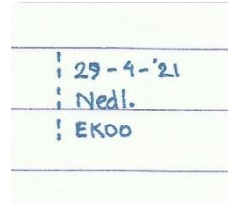 29-4-'21
Nedl.
EKOO